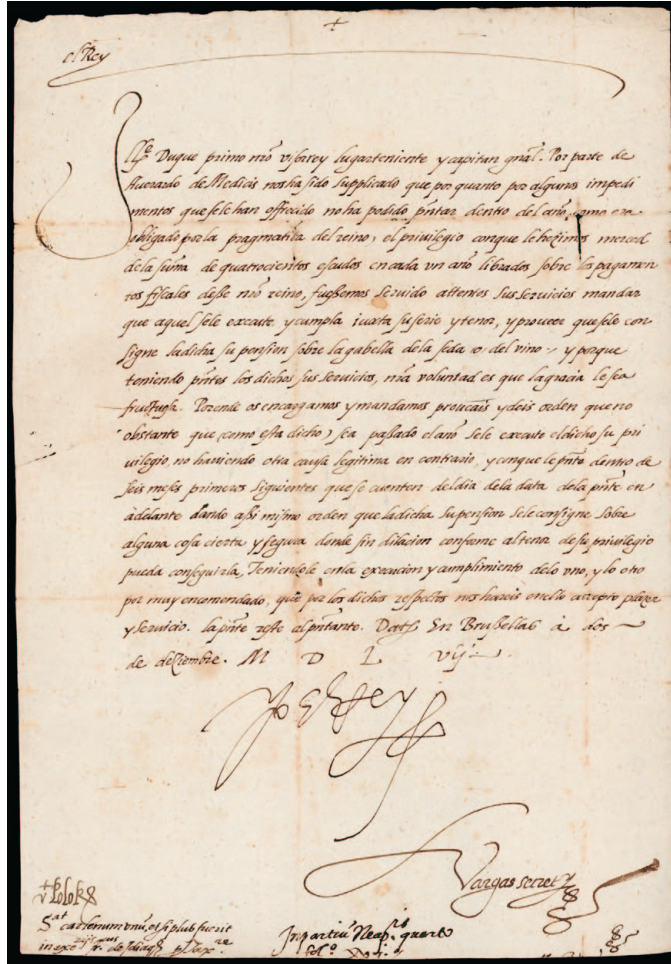 el Rey
Ille. Duque primo nro visorrey lugarteniente y capitan gnal. Por parte de
Averardo de Medicis nos ha sido supplicado que por quanto por algunos impedi
mentos que se le han offrecido no ha podido pntar dentro del año, como era
obligado por la pragmatica del reino, el privilegio con que le hezimos merced
de la suma de quatrocientos escudos en cada vn año librados sobre los pagamen
tos fiscales desse nro reino, fuessemos servido attentos sus servicios mandar
que aquel se le execute y cumpla iuxta su serie y tenor, y proveer que se le con
signe la dicha su pension sobre la gabella de la seda o, del vino y porque
teniendo pntes los dichos sus servicios, nra voluntad es que la gracia le sea
Porende os encargamos y mandamos proveais y deis orden que no
obstante que, como esta dicho, sea passado el año, se le execute el dicho su pri
uilegio, no haviendo otra causa legitima en contrario, y con que le pnte dentro de
seis meses primeros siguientes que se cuenten del dia de la data de la pnte en
adelante dando assi mismo orden que la dicha su pension se le consigne sobre
alguna cosa cierta y segura donde sin dilacion conforme al tenor de su privilegio
pueda conseguirla, Teniendole en la execucion y cumplimiento de lo vno, y lo otro
por muy encomendado, que por los dichos respectos nos hareis en ello accepto plazer
y servicio. la pnte reste al pntante. Dat. En Brussellas à dos
de deziembre. M D L vij.
Yo el Rey
Vargas secret
Sat
In partiu Neap. quarto